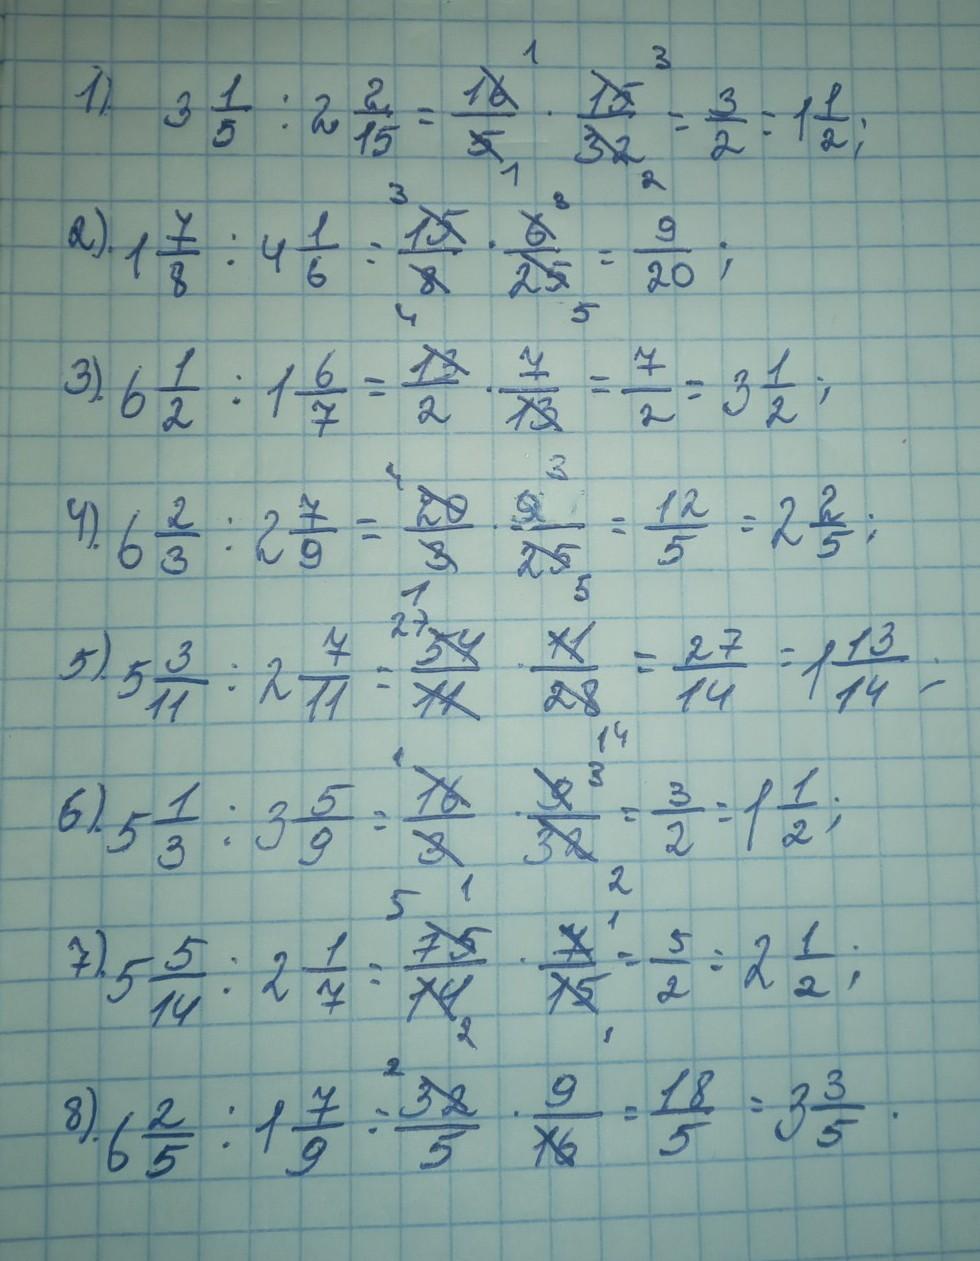 1). 3 1/5 : 2 2/15 = 16/5 · 15/32 = 3/2 = 1 1/2;
2). 1 7/8 : 4 1/6 = 15/8 · 6/25 = 9/20;
3). 6 1/2 : 1 6/7 = 13/2 · 7/13 = 7/2 = 3 1/2;
4). 6 2/3 : 2 7/9 = 20/3 · 9/25 = 12/5 = 2 2/5;
5). 5 3/11 : 2 7/11 = 54/11 · 11/28 = 27/14 = 1 13/14;
6). 5 1/3 : 3 5/9 = 16/3 · 9/32 = 3/2 = 1 1/2;
7). 5 5/14 : 2 1/7 = 75/14 · 7/15 = 5/2 = 2 1/2;
8). 6 2/5 : 1 7/9 = 32/5 · 9/16 = 18/5 = 3 3/5.